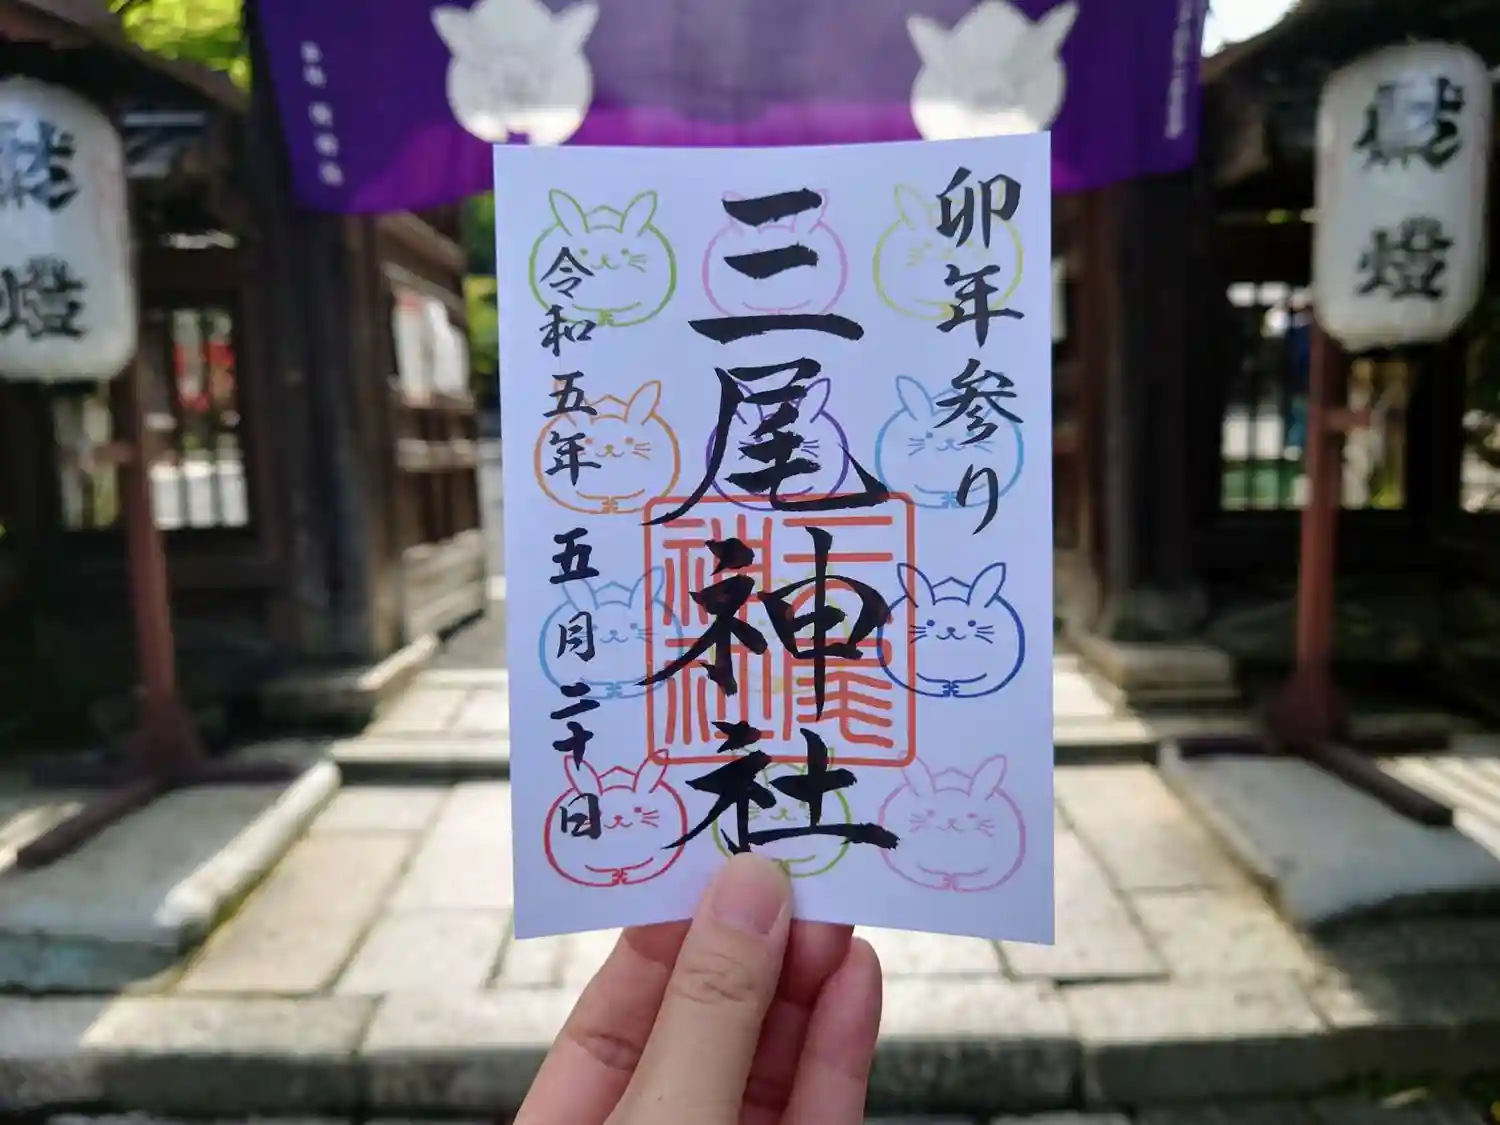 卯年参り
三尾神社
三尾神社
令和五年 五月二十日
献燈
献燈